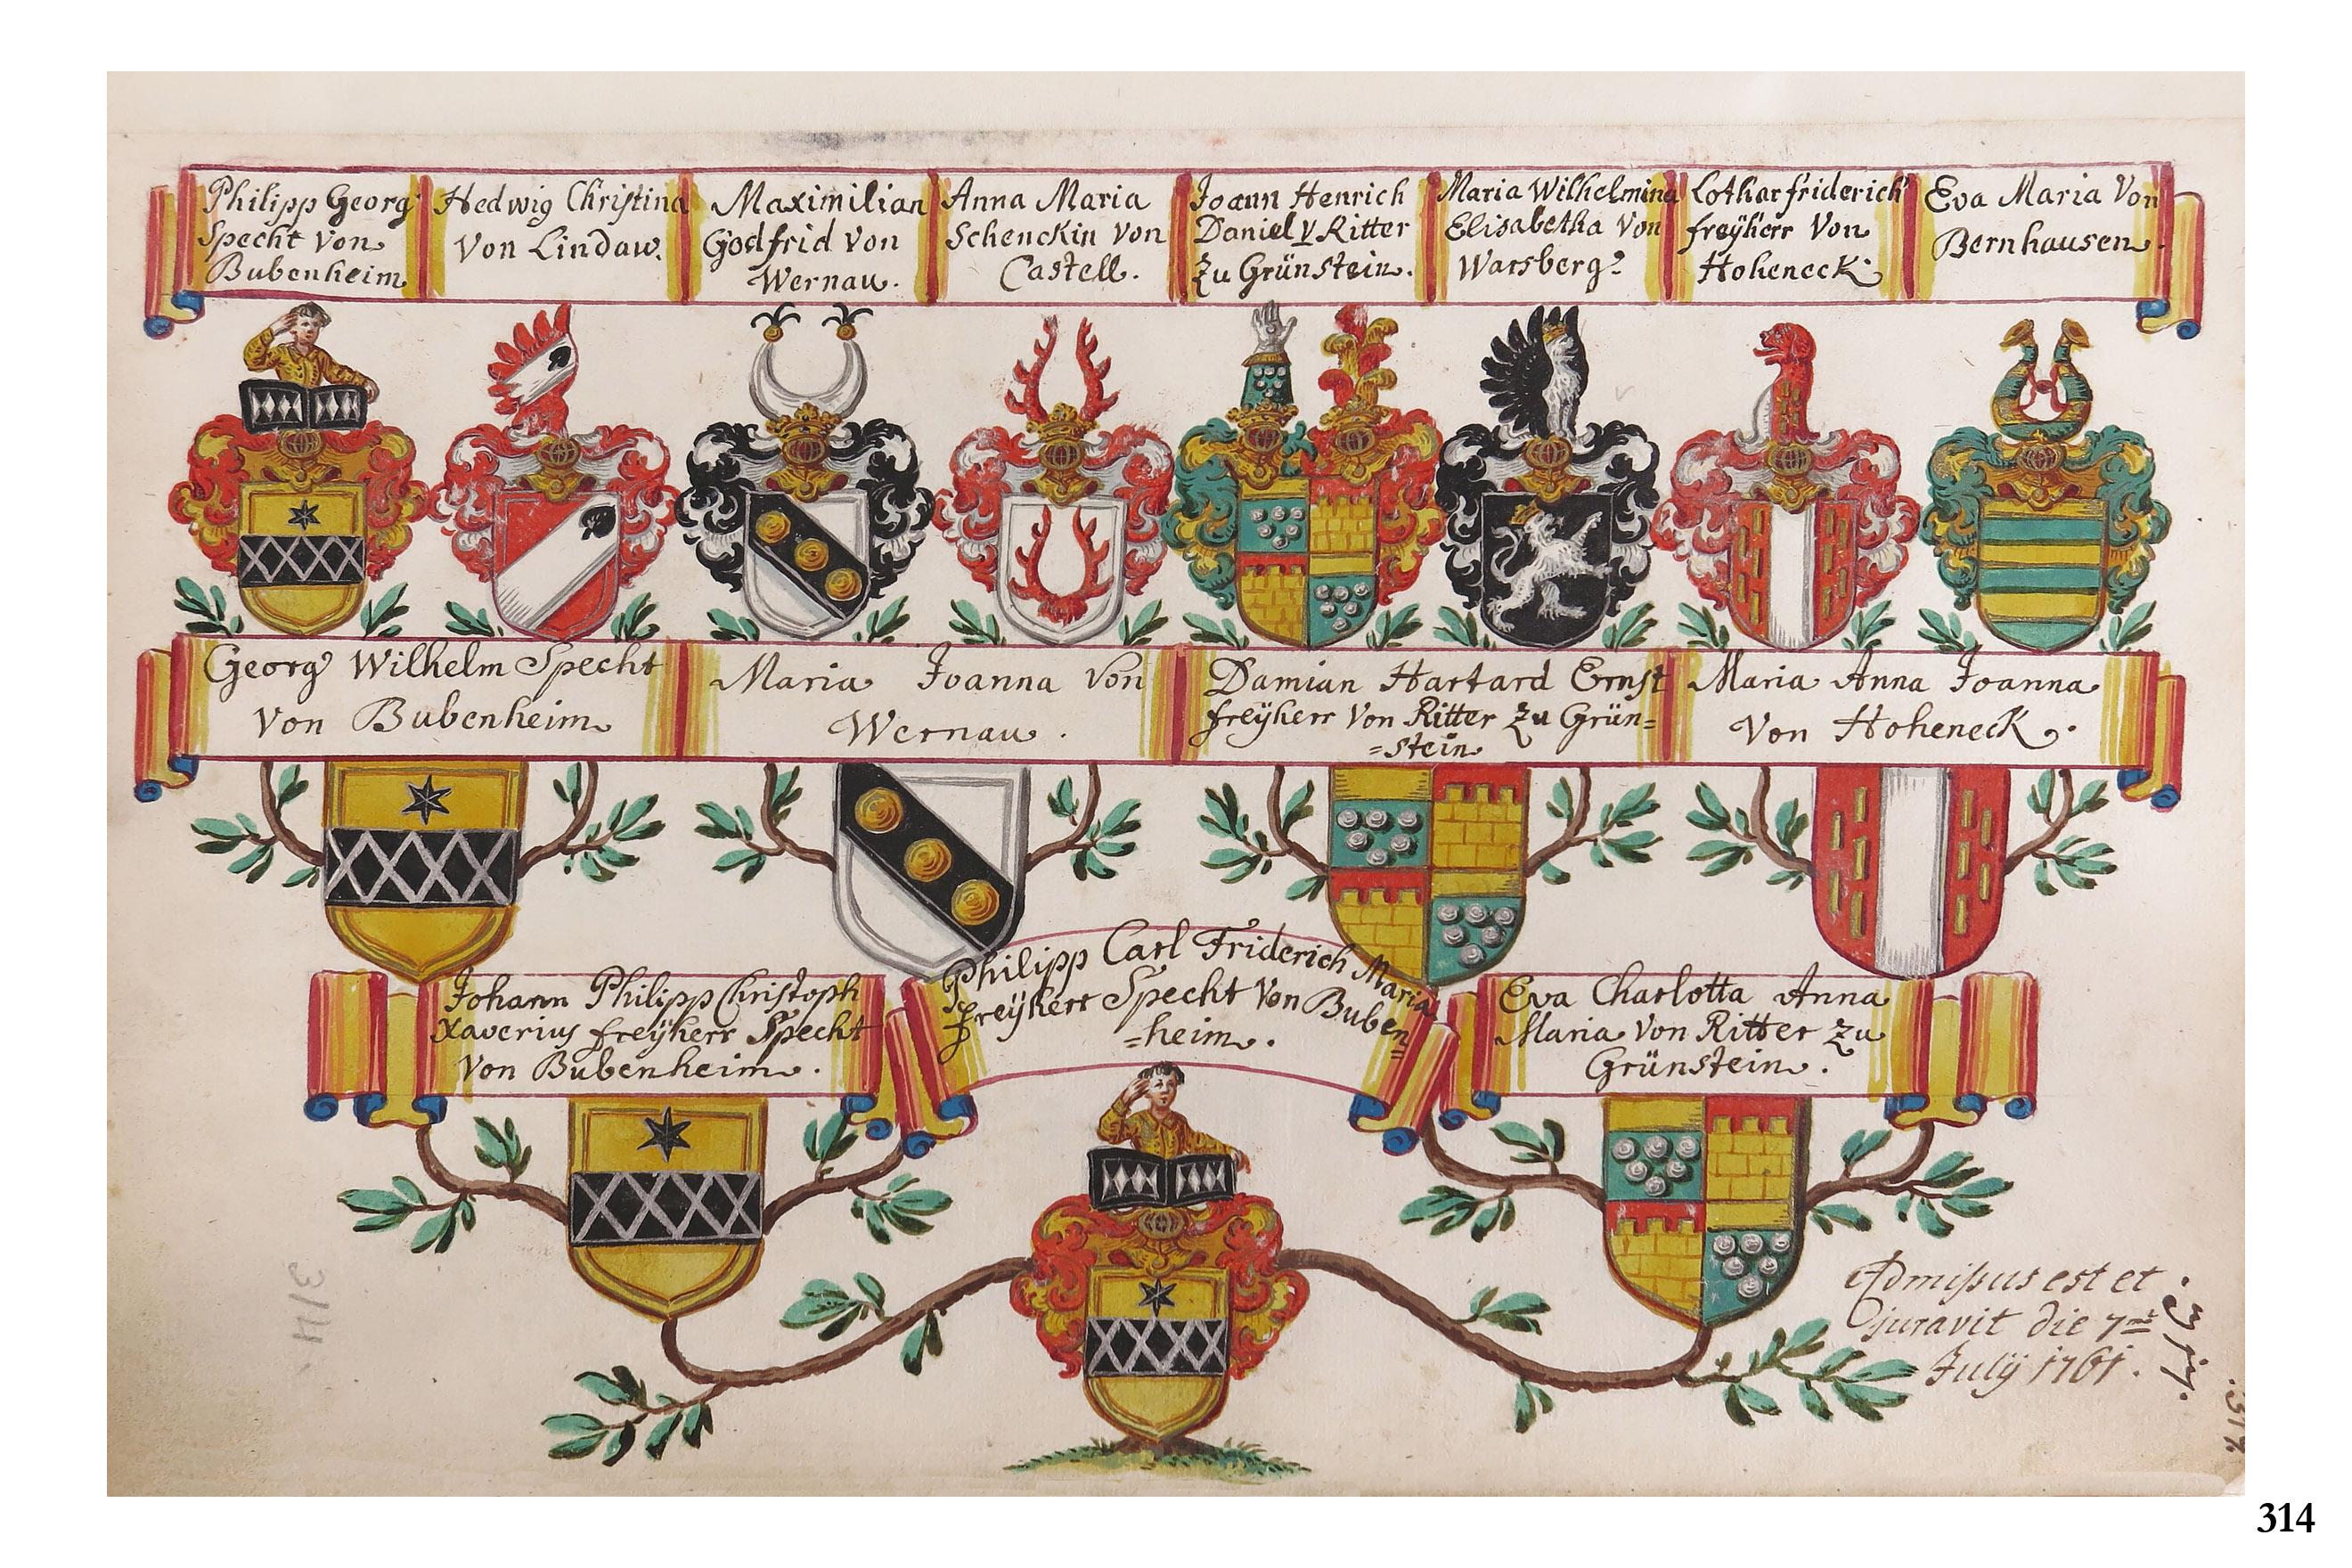 Philipp Georg
Specht von
Bubenheim
Hedwig Christina
von Lindaw.
Maximilian
Godfrid von
Wernau.
Anna Maria
Schenckin von
Castell.
Joann Henrich
Daniel V Ritter
zu Grünstein.
Maria Wilhelmina
Elisabetha von
Warsberg
Lotharfriderich
freÿherr von
Hoheneck
Eva Maria von
Bernhausen.
Georg Wilhelm Specht
von Bubenheim
Maria Joanna von
Wernau.
Damian Hartard Ernst
freÿherr von Ritter zu Grün=
=stein
Maria Anna Joanna
von Hoheneck.
Johann Philipp Christoph
Xaverius freÿherr Specht
von Bubenheim.
Philipp Carl Friderich Maria
freÿherr Specht von Buben=
=heim.
Eva Charlotta Anna
Maria von Ritter zu
Grünstein.
Admißus est et
juravit die 7ma
Julÿ 1761.
314
317.
314